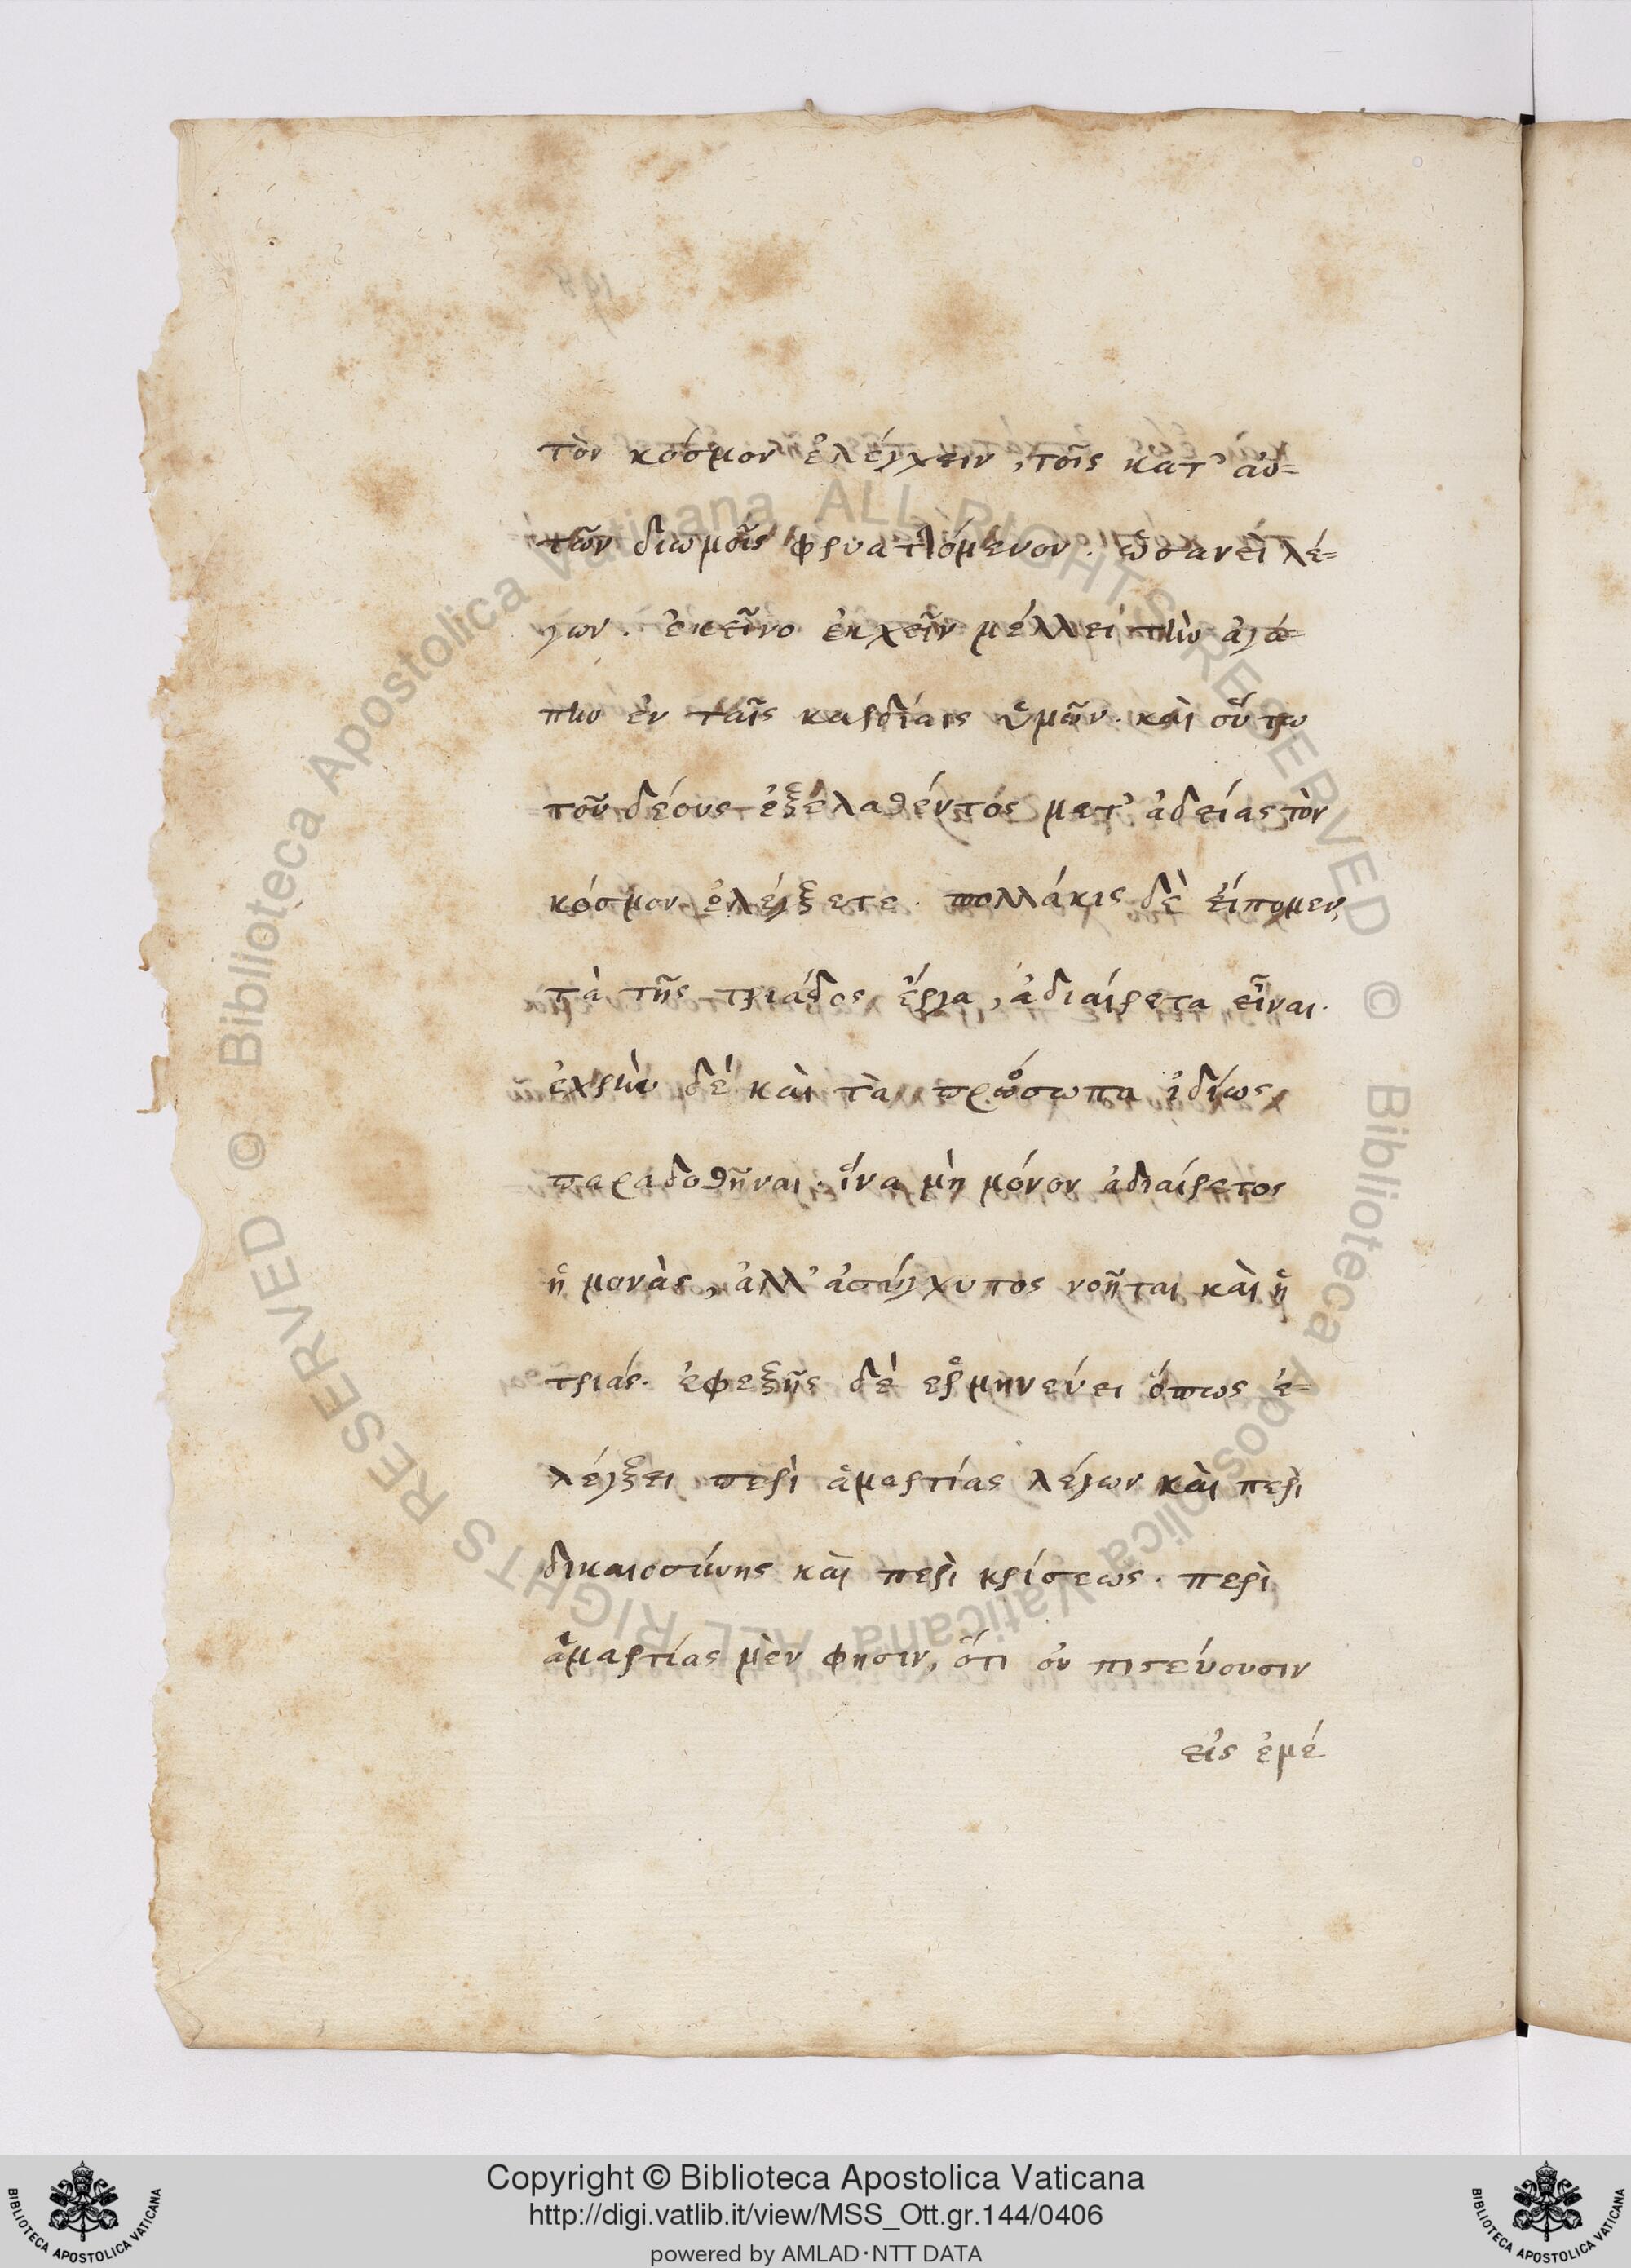 τὸν κόσμον ἐλέγχειν, τοῖς κατ' αὐ=
τῶν διωγμοῖς φρυαττόμενον. ὡσανεὶ λέ=
γων. ἐκεῖνο ἐκχεῖν μέλλει τὴν ἀγά=
πην ἐν ταῖς καρδίαις ὑμῶν. καὶ οὕτω
τοῦ δέους ἐξελαθέντος μετ' ἀδείας τὸν
κόσμον ἐλέγξετε. πολλάκις δὲ εἴπομεν
τὰ τῆς τριάδος ἔργα, ἀδιαίρετα εἶναι.
ἐχρὴν δὲ καὶ τὰ πρόσωπα ἰδίως
παραδοθῆναι. ἵνα μὴ μόνον ἀδιαίρετος
ἡ μονὰς, ἀλλ' ἀσύγχυτος νοῆται καὶ ἡ
τριάς. ἐφεξῆς δὲ ἑρμηνεύει ὅπως ἐ=
λέγξει περὶ ἁμαρτίας λέγων καὶ περὶ
δικαιοσύνης καὶ περὶ κρίσεως. περὶ
ἁμαρτίας μὲν φησιν, ὅτι οὐ πιστεύουσιν
εἰς ἐμέ
Copyright © Biblioteca Apostolica Vaticana
http://digi.vatlib.it/view/MSS_Ott.gr.144/0406
powered by AMLAD·NTT DATA
BIBLIOTECA APOSTOLICA VATICANA
BIBLIOTECA APOSTOLICA VATICANA
© Biblioteca Apostolica Vaticana ALL RIGHTS RESERVED
© Biblioteca Apostolica Vaticana ALL RIGHTS RESERVED